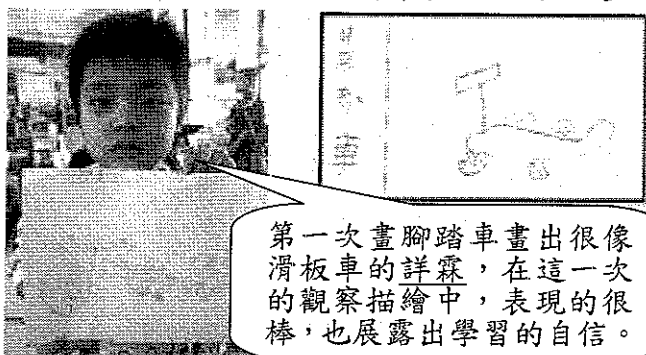 第一次畫腳踏車畫出很像
滑板車的詳霖，在這一次
的觀察描繪中，表現的很
棒，也展露出學習的自信。